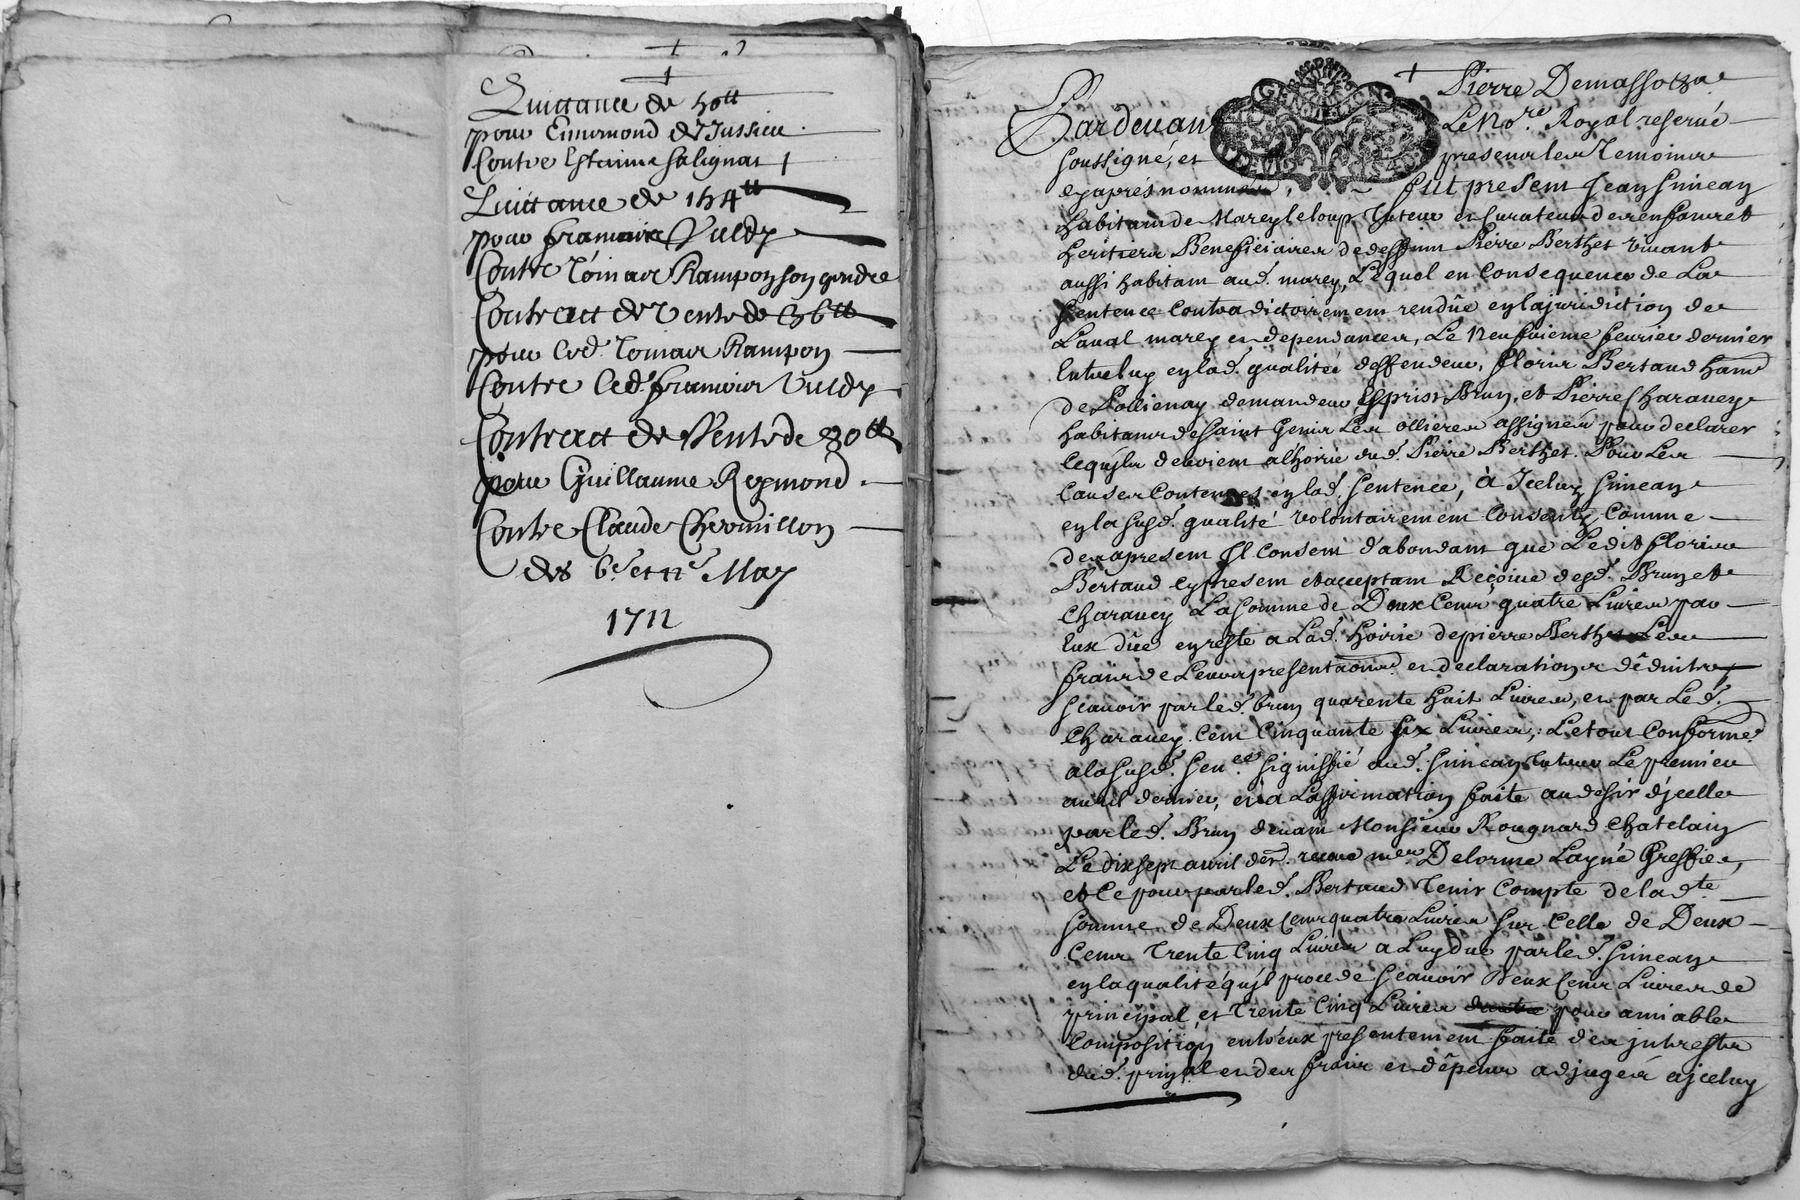 Quittance de 50tt
pour Eimmond de Jussieu
Contre Estienne Salignat
Quittance de 154tt
pour francois Vuldy
Contre Tomas Rampon son gendre
Contract de Vente de 36tt
pour led. Tomas Rampon
Contre led. francois Vuldy
Contract de Vente de 30tt
pour Guillaume Reymond
Contre Claude Chermillon
des 6e et 11e May
1711
Pardevant Pierre Demasso
Le No.re Royal reservé
soussigné, et presens les Temoins
cy aprés nommés, fut present Jean Simean
habitant de Marcy le loup Tuteur et Curateur des enfans et
heritiers Beneficiaires de deffunt Pierre Berthet vivant
aussi habitant aud. marcy, Lequel en Consequence de La
Sentence Contradictoirement rendûe en la juridiction de
Laval marcy et dependances, Le Neufvieme fevrier dernier
Entre luy en lad. qualité deffendeur, florir Bertaud hant
de Pollienay demandeur, Esprist Brun, et Pierre Charavey
habitans de Saint Genis Les ollieres assignés pour declarer
ce qu'ils devoient a l'hoirie dud. Pierre Berthet. Pour Les
Causes Contenues en lad. Sentence, à Iceluy Simean
en la susd. qualité volontairement Consenty Comme
des apresent Il Consent d'abondant que Ledit florir
Bertaud cy present et acceptant Reçoive desd. Brun et
Charavey La Somme de Deux Cens quatre Livres par
Eux dûe en reste a Lad. hoirie de pierre Berthet Les
frais de Leurs presentaons. et declarations dêduits
Scavoir par led. brun quarente huit Livres, et par Led.
Charavey Cent Cinquante Six Livres, Le tout Conforme.
a la susd. Sen.ce Signiffié aud. Simean tuteur Le premier
avril dernier, et a Laffirmation faite au desir d'jcelle
par led. Brun devant Monsieur Rougnard Chatelain
Le dix sept avril der. Delorme Layné Greffier,
et Ce pour par led. Bertaud Tenir Compte de la d.te
Somme de Deux Cens quatre Livres Sur Celle de Deux
Cens Trente Cinq Livres a Luy due par led. Simean
en la qualité qu'jl procede Scavoir Deux Cens Livres de
principal, et Trente Cinq Livres pour amiable
Composition entr'eux presentement faite des jnterests
dud. prin.al et des frais et dêpens adjugés a jceluy